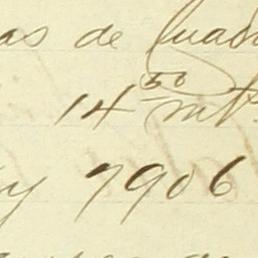 as de Cuad
14 50 mts
y 7906